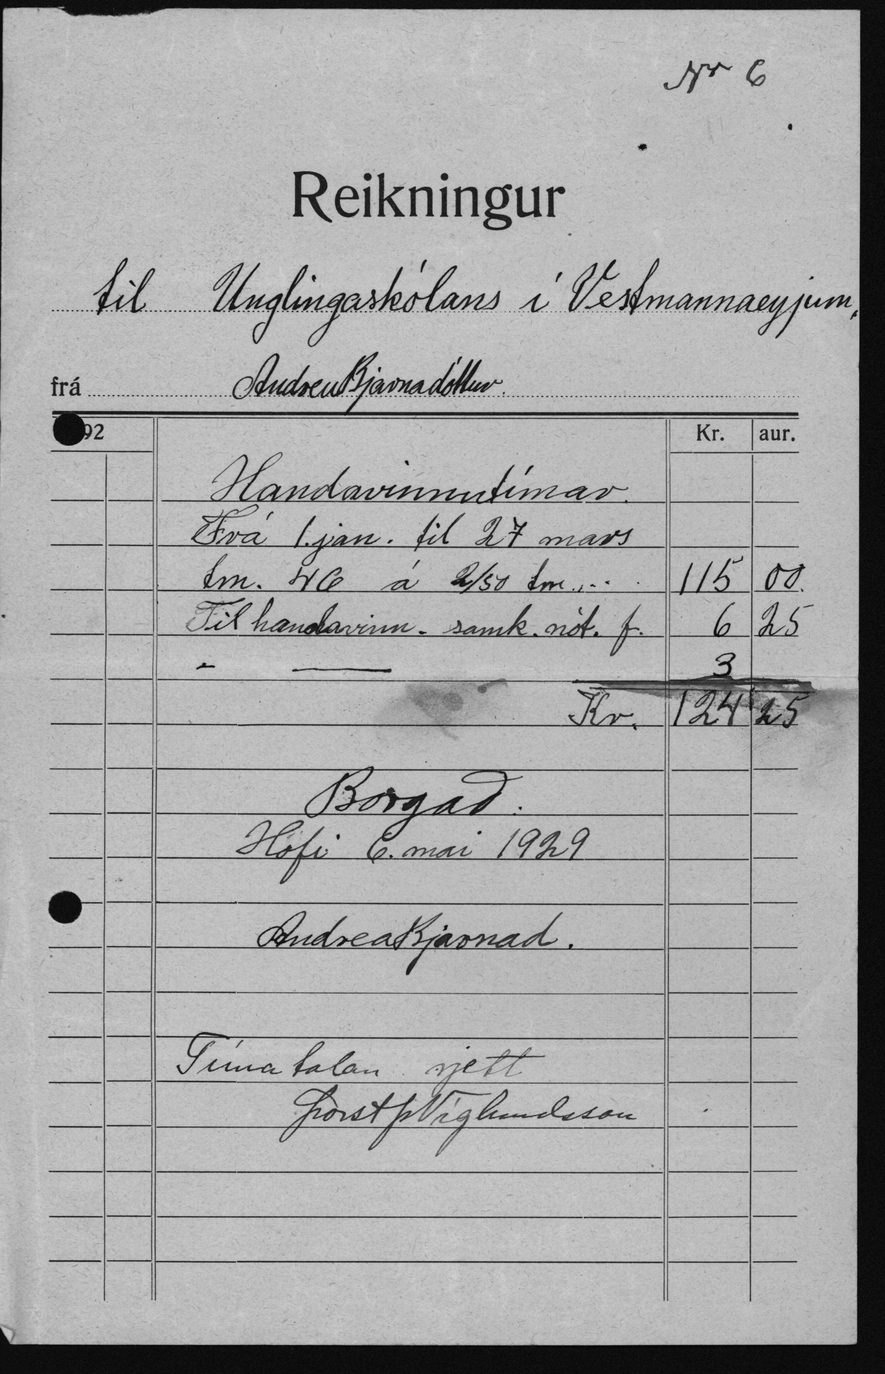 Nr 6
Reikningur
til Unglingaskólans í Vestmannaeyjum,
frá Andreu Bjarnadóttur.
192 Kr. aur.
Handavinnutímar.
Frá 1. jan. til 27 mars
tm. 46 á 2/50 tm... 115 00.
Til handavinn. samk. nót. f. 6 25
" — 3
Kr. 124 25
Borgað.
Hofi 6. mai 1929
Andrea Bjarnad.
Tímatalan rjett
Þorst Þ Víglundsson